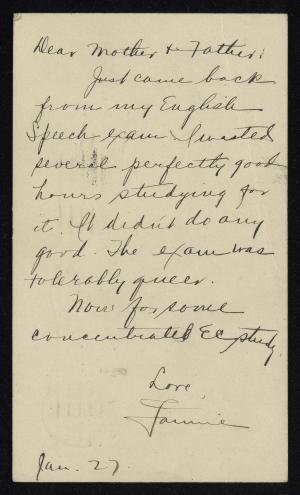 Dear Mother & Father:
Just came back
from my English
Speech exam. I wasted
several perfectly good
hours studying for
it. It didn't do any
good. The exam was
tolerably queer.
Now for some
concentrated Ec study.
Love,
Fannie
Jan. 27.